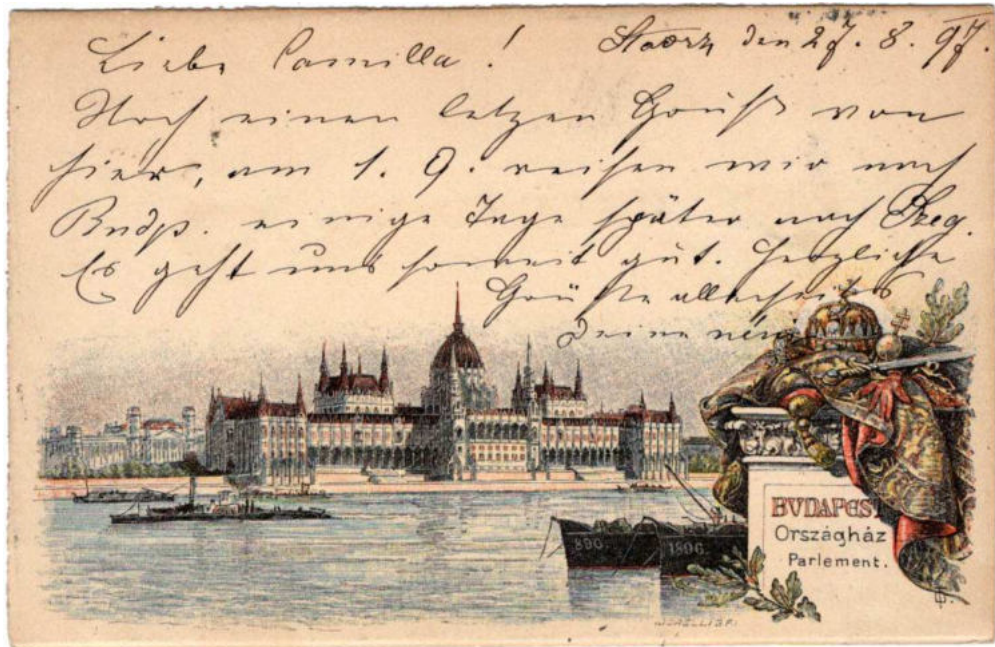 Liebe Camilla! den 27. 8. 97.
Noch einen letzen Gruß von
hier, am 1. 9. reisen wir nach
Budp. einige Tage später nach Szeg.
Es geht uns soweit gut. Herzliche
Grüße allerseits
Deine
896
1806
BUDAPEST
Országház
Parlement.